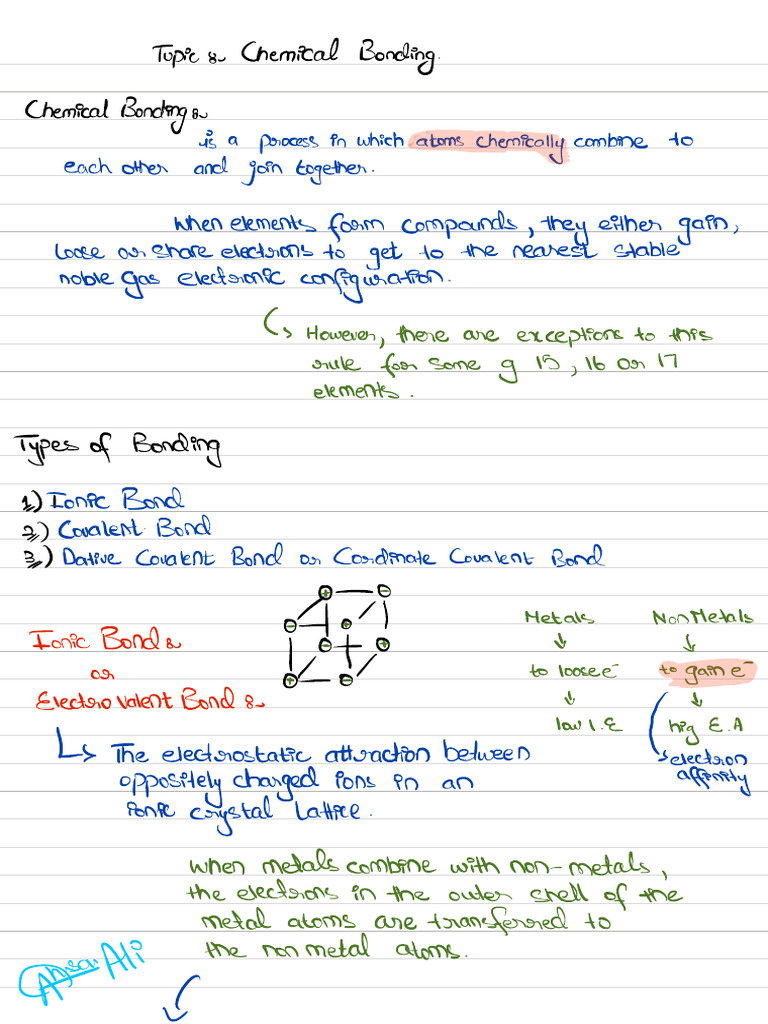 Topic :- Chemical Bonding.
Chemical Bonding :-
is a process in which atoms chemically combine to
each other and join together.
When elements form compounds, they either gain,
loose or share electrons to get to the nearest stable
noble gas electronic configuration.
However, there are exceptions to this
rule for some g 15, 16 or 17
elements.
Types of Bonding
1) Ionic Bond
2) Covalent Bond
3) Dative Covalent Bond or Cordinate Covalent Bond
Metals NonMetals
Ionic Bond :-
to loose e⁻ to gain e⁻
or
Electrovalent Bond :-
low I.E hig E.A
electron
affinity
The electrostatic attraction between
oppositely charged ions in an
ionic crystal lattice.
When metals combine with non-metals,
the electrons in the outer shell of the
metal atoms are transferred to
the non metal atoms.
Ali